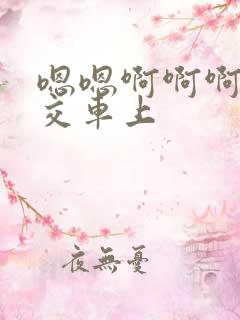 嗯嗯啊啊啊
交車上
夜無憂